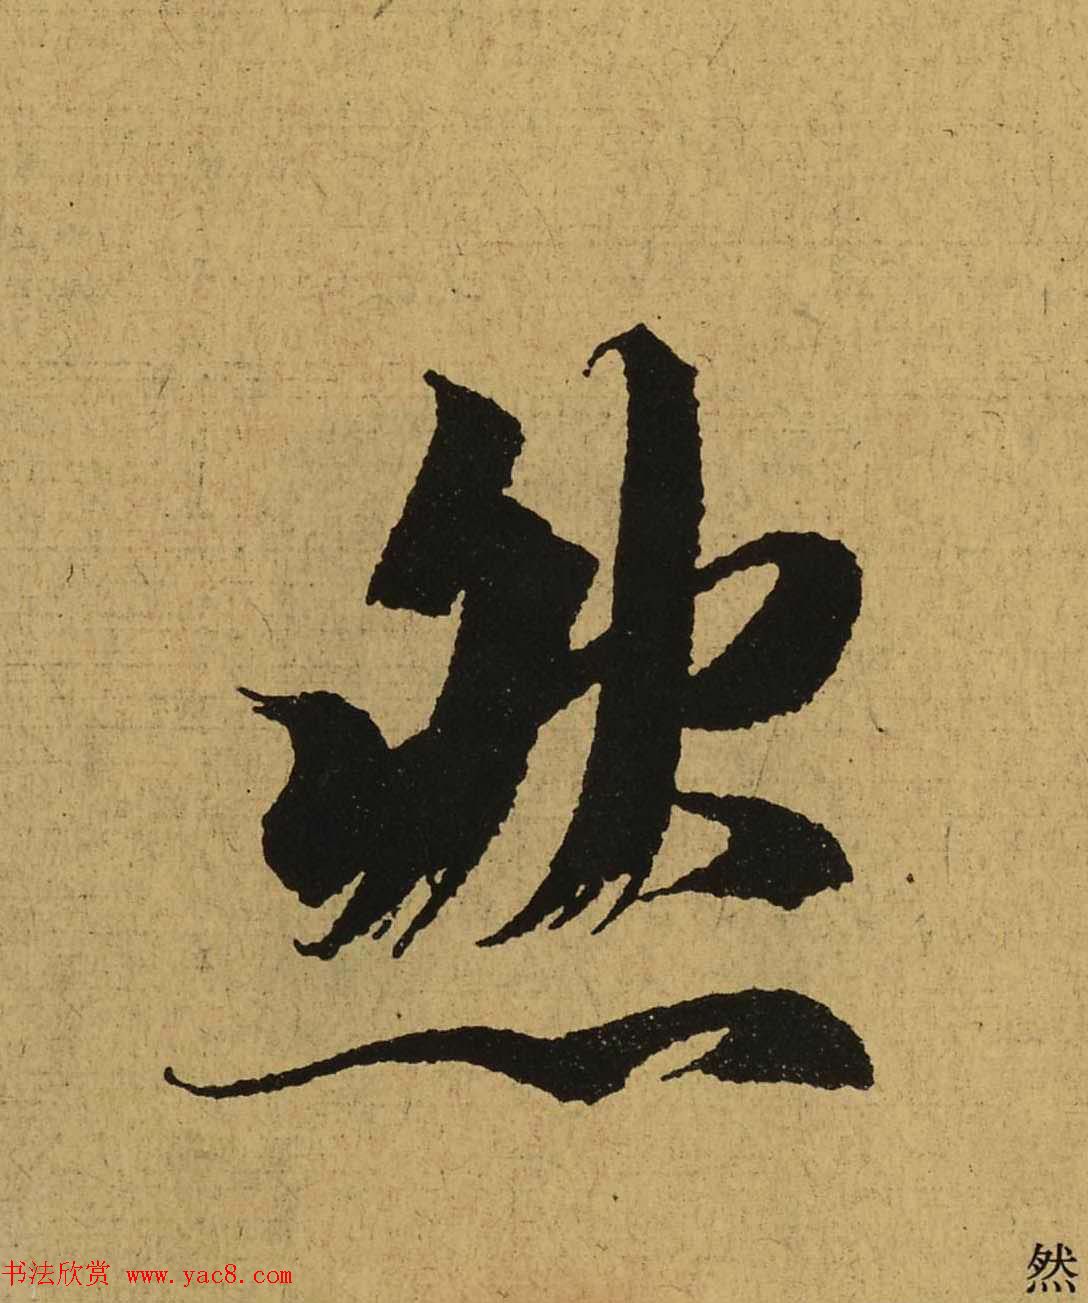 然
然
书法欣赏 www.yac8.com